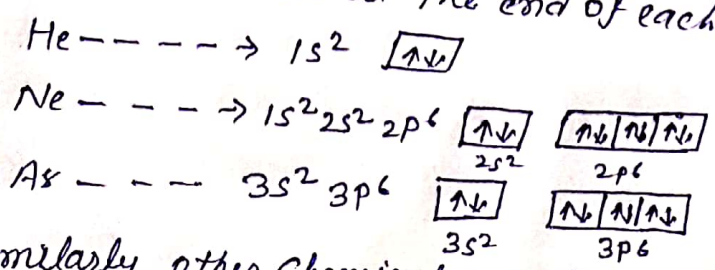 The end of each
He - - - - - → 1s² ↑↓
Ne - - - → 1s² 2s² 2p⁶ ↑↓ ↑↓ ↑↓ ↑↓
2s² 2p⁶
Ar - - - 3s² 3p⁶ ↑↓ ↑↓ ↑↓ ↑↓
3s² 3p6
milarly other